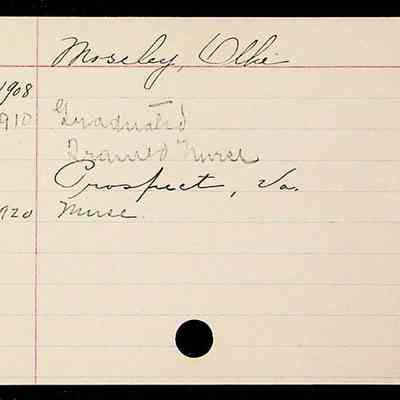 Moseley, Ollie
1908
1910 Graduated
Trained Nurse
Prospect, Va.
1920 Nurse